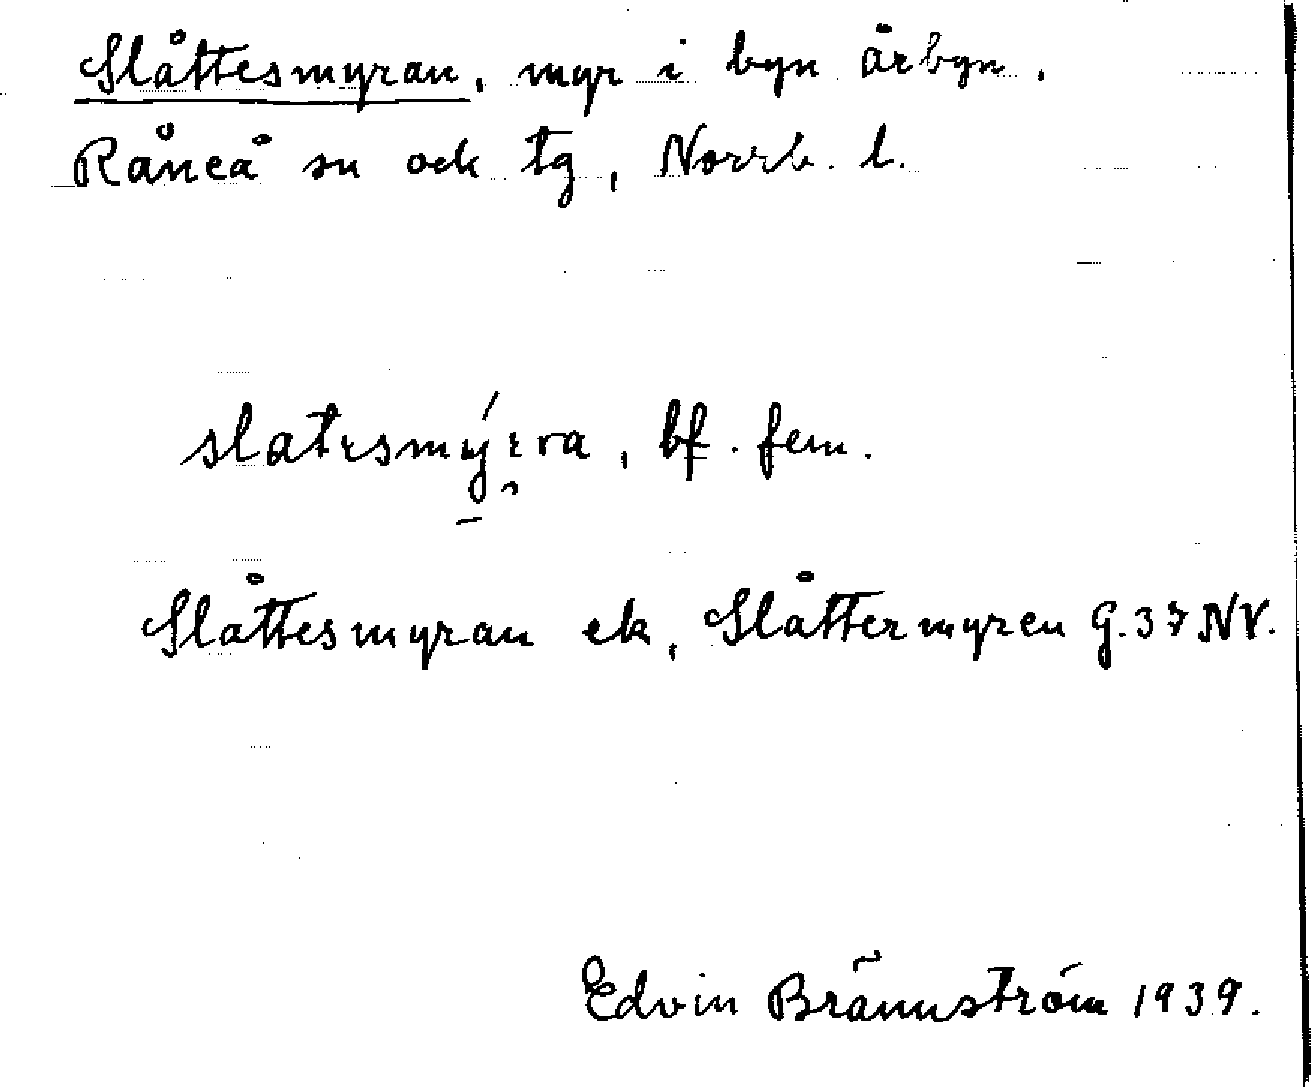 Slåttesmyran, myr i byn årbyn.
Råneå sn och tg, Norrb. l.
bf. fem.
Slåttesmyran ek, Slåttermyren G.37NV.
Edvin Brännström 1939.